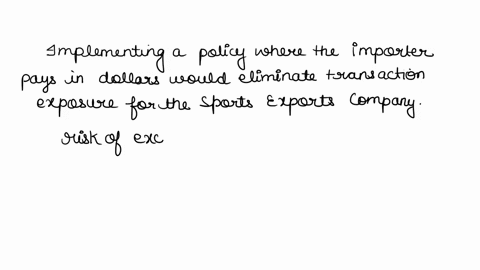 Implementing a policy where the importer
pays in dollars would eliminate transaction
exposure for the Sports Exports Company.
risk of exc